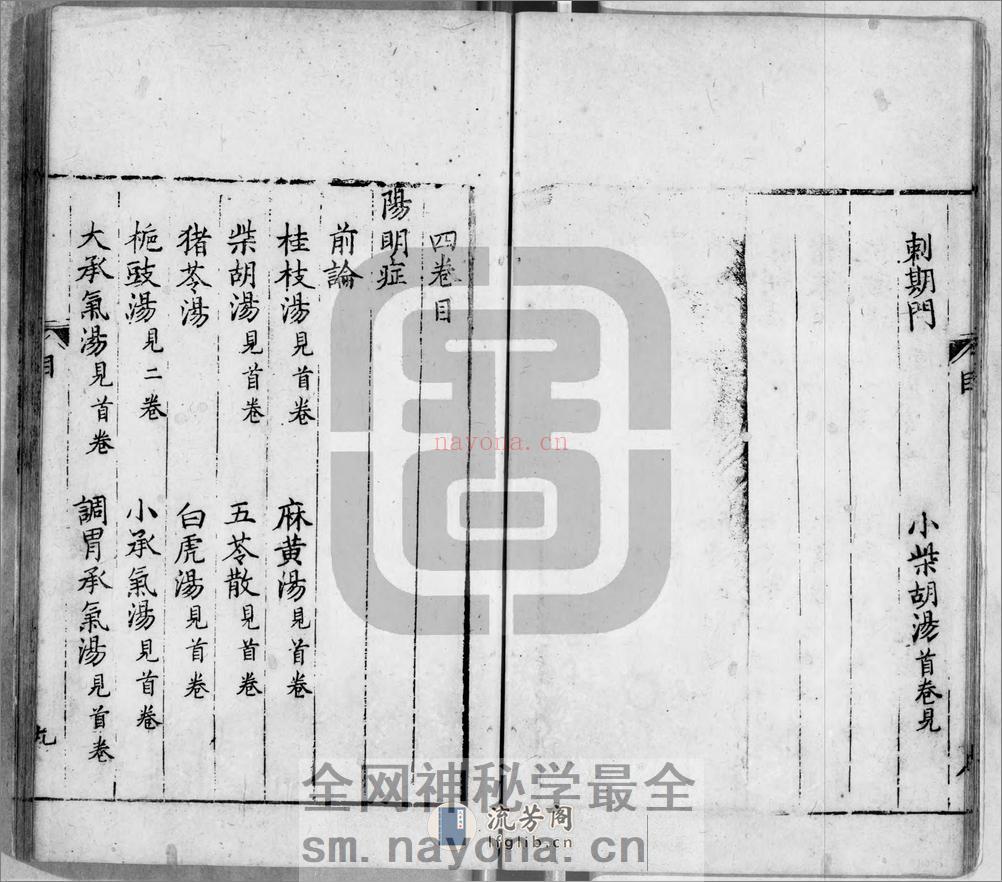 刺期門 小柴胡湯首卷見
目
四卷目
陽明症
前論
桂枝湯見首卷 麻黃湯見首卷
柴胡湯見首卷 五苓散見首卷
猪苓湯 白虎湯見首卷
梔豉湯見二卷 小承氣湯見首卷
大承氣湯見首卷 調胃承氣湯見首卷
目
九
nayona.cn
全网神秘学最全
流芳阁
lfglib.cn
sm.nayona.cn